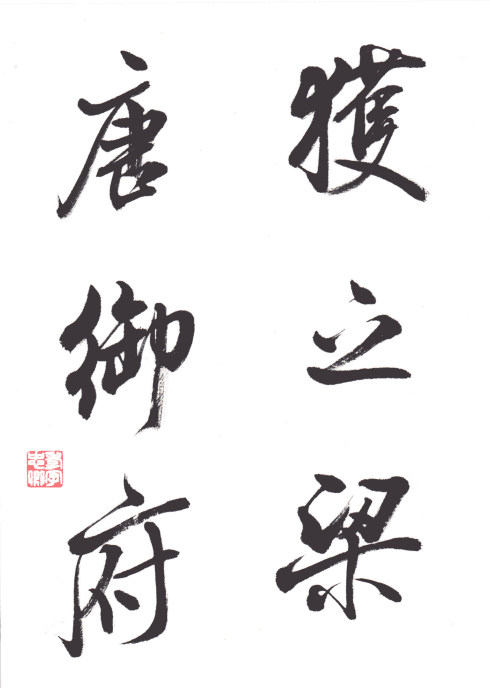 獲之梁
唐御府